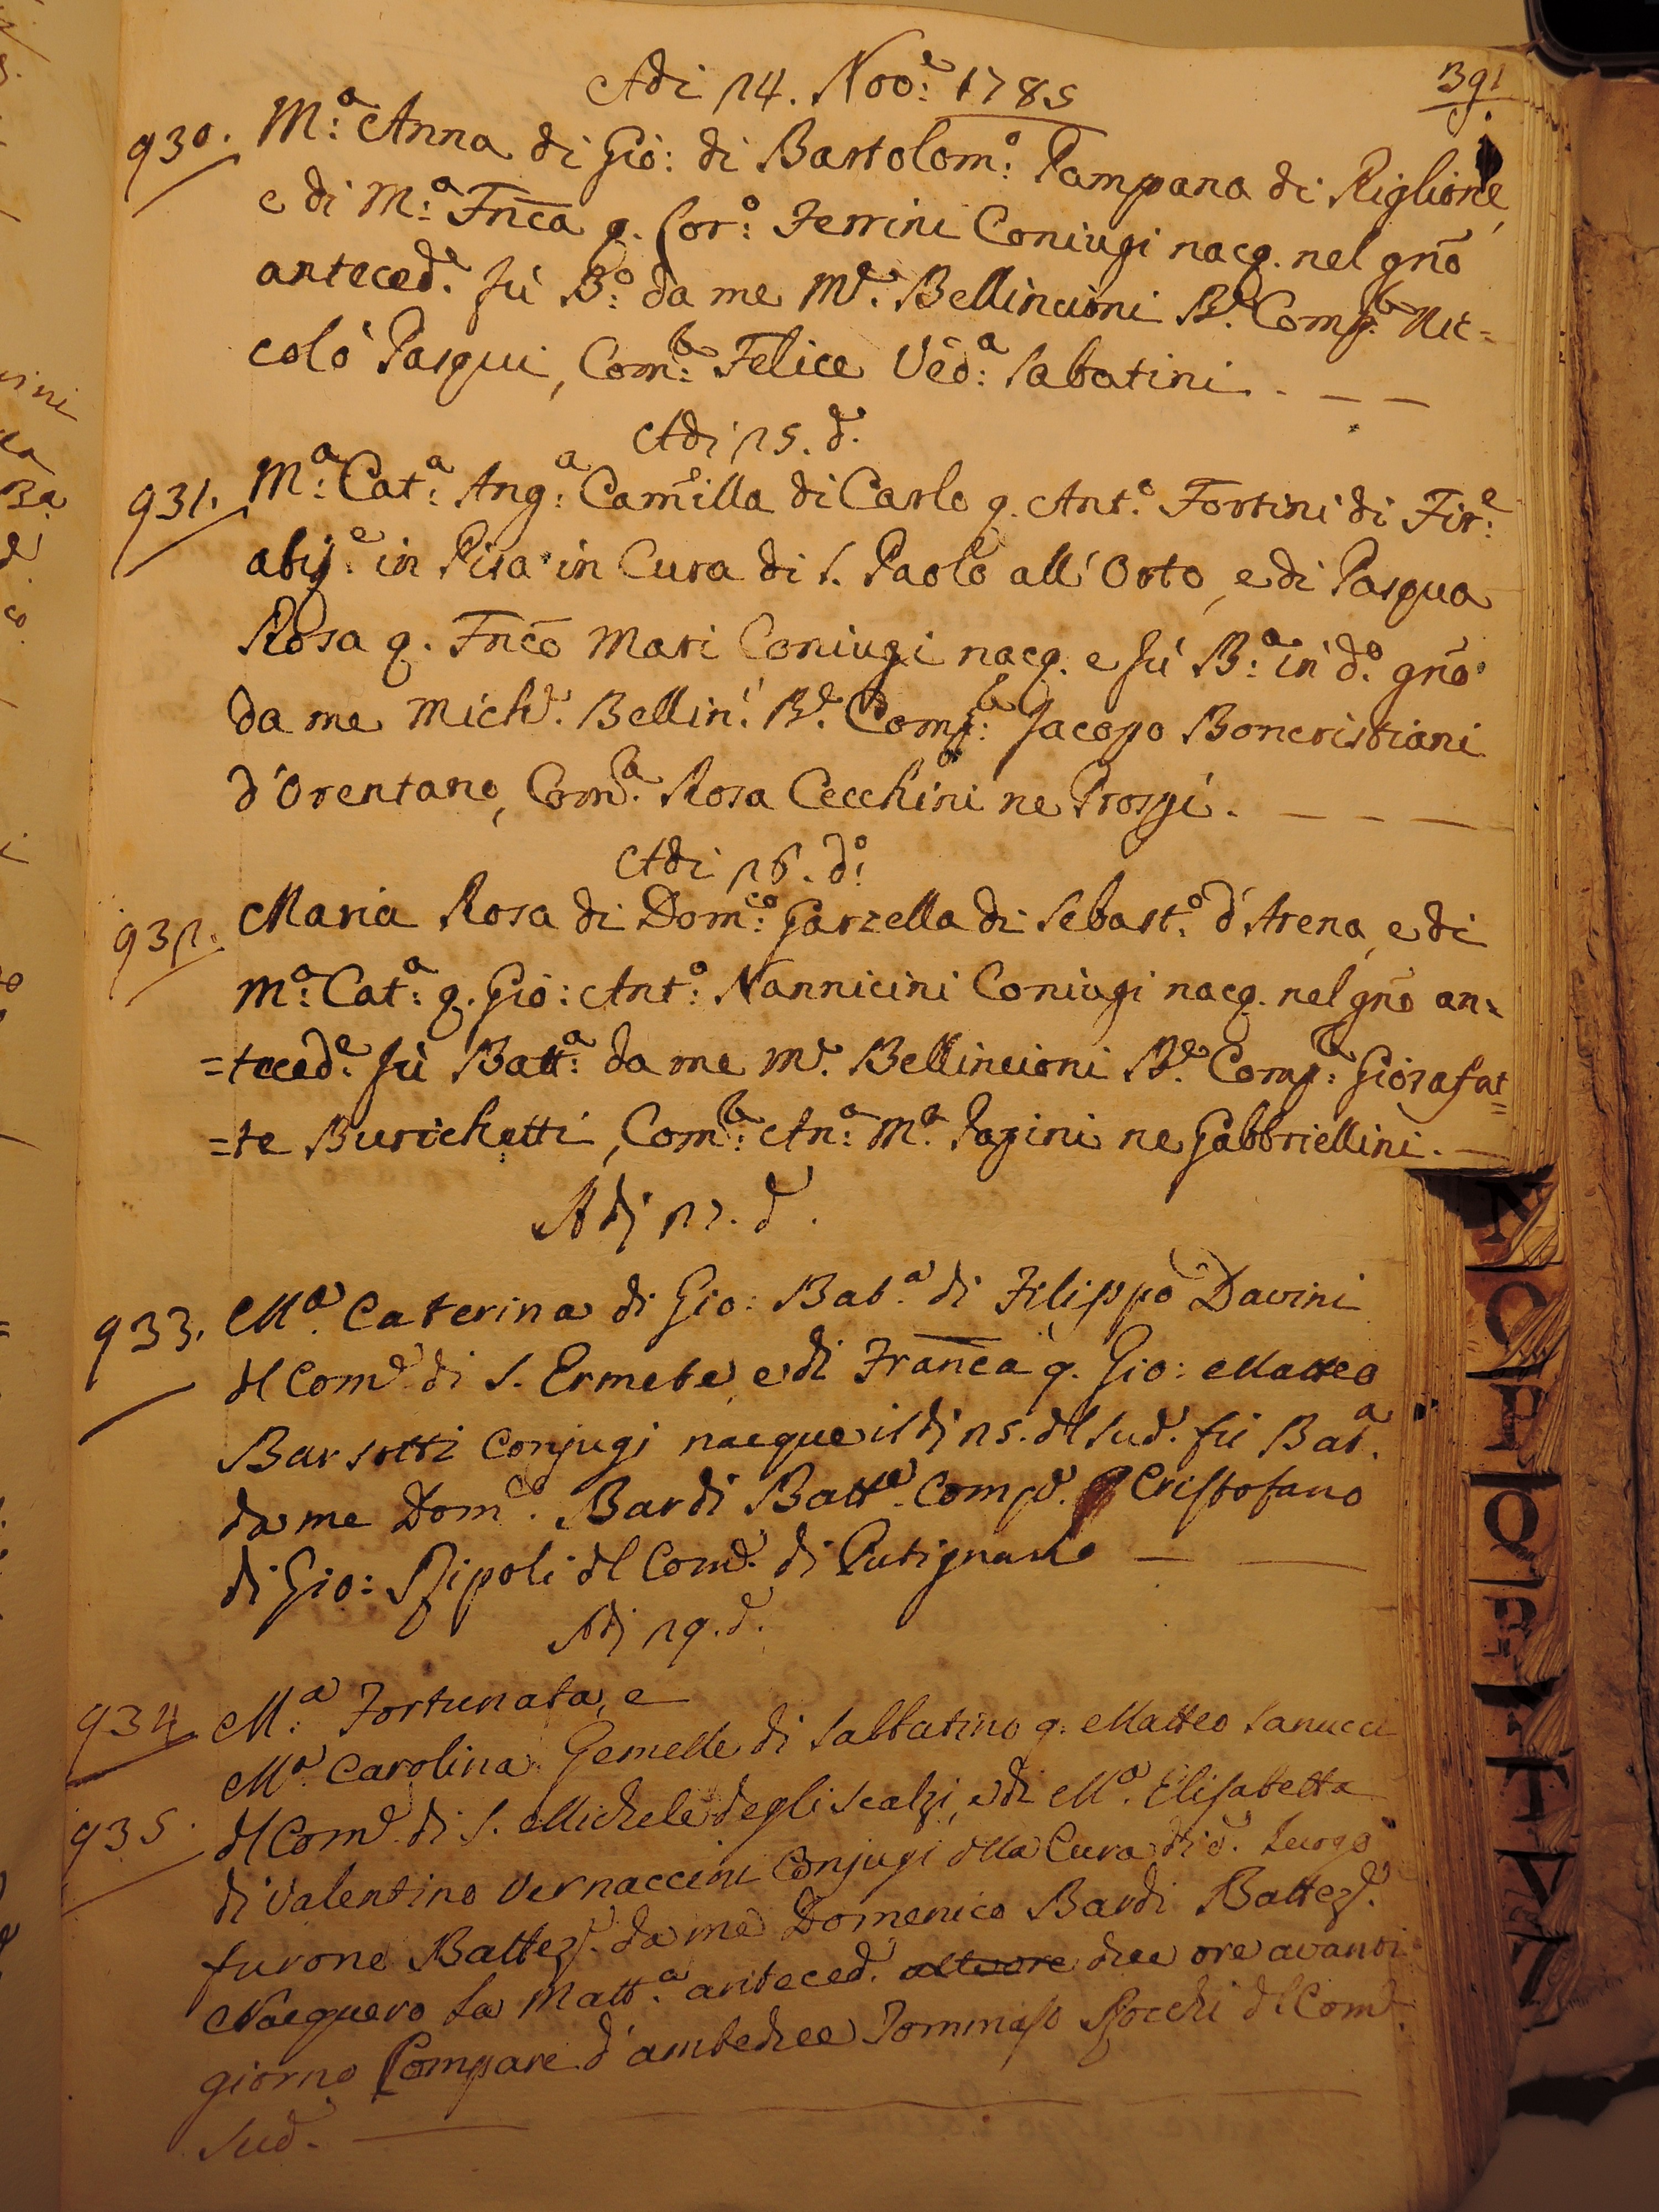 391
Adi 24. Nov.e 1785
930. M:a Anna di Gio: di Bartolom:o Pampana di Riglione,
e di M:a Fnca q. Lor:o Ferrini Coniugi nacq. nel gño
anteced.e fù B:o da me M.e Bellincioni B.e Comp.e Nic=
colò Pasqui, Com:e Felice Ved:a Sabatini . _ _ _
Adi 25. d.o
931. M:a Cat:a Ang:a Camilla di Carlo q. Ant.o Fortini di Fir:e
abi.e in Pisa in Cura di S. Paolo all'Orto, e di Pasqua
Rosa q. Fnco Mari Coniugi nacq. e fù B:a in d.o gño
da me Mich.e Bellin.i B.e Comp: Jacopo Boncristiani
d'Orentano, Com.e Rosa Cecchini ne Prosgi. _ _ _
Adi 26. d:o
932. Maria Rosa di Dom:co Garzella di Sebast.o d'Arena, e di
M:a Cat:a q. Gio: Ant:o Nannicini Coniugi nacq. nel gño an=
=teced.e fù Batt:a da me M.e Bellincioni B.e Comp: Giosafat=
=te Burichetti, Com: An:a M.a Pagini ne Gabbriellini. _
Adj 27. d.
933. M.a Caterina di Gio: Bat.a di Filippo Davini
dl Com.e di S. Ermete e di Franca q. Gio: Matteo
Barsotti Conjugi nacque il dj 25. dl sud. fu Bat.a
da me Dom.co Bardi Batt.e Comp.e Cristofano
dj Gio: Ripoli dl Com.e di Putignano _ _
Adj 29. d.
934 M:a Fortunata, e
935. M.a Carolina Gemelle di Sabbatino q. Matteo Sanucci
dl Com.e di S. Michele degli Scalzi, e di M.a Elisabetta
di Valentino Vernaccini Conjugi dlla Cura di d. Luogo
furono Battez.e da me Domenico Bardi Battez.e
Nacquero la Matt:a anteced. due ore avanti
giorno Compare d'ambedue Tommaso Rocchi dl Com.e
sud. _ _